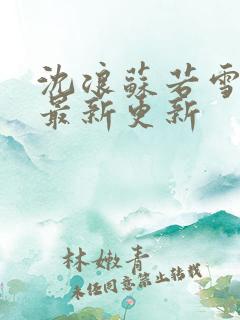 沈浪蘇若雪
最新更新
林嫩青
未经同意禁止转载